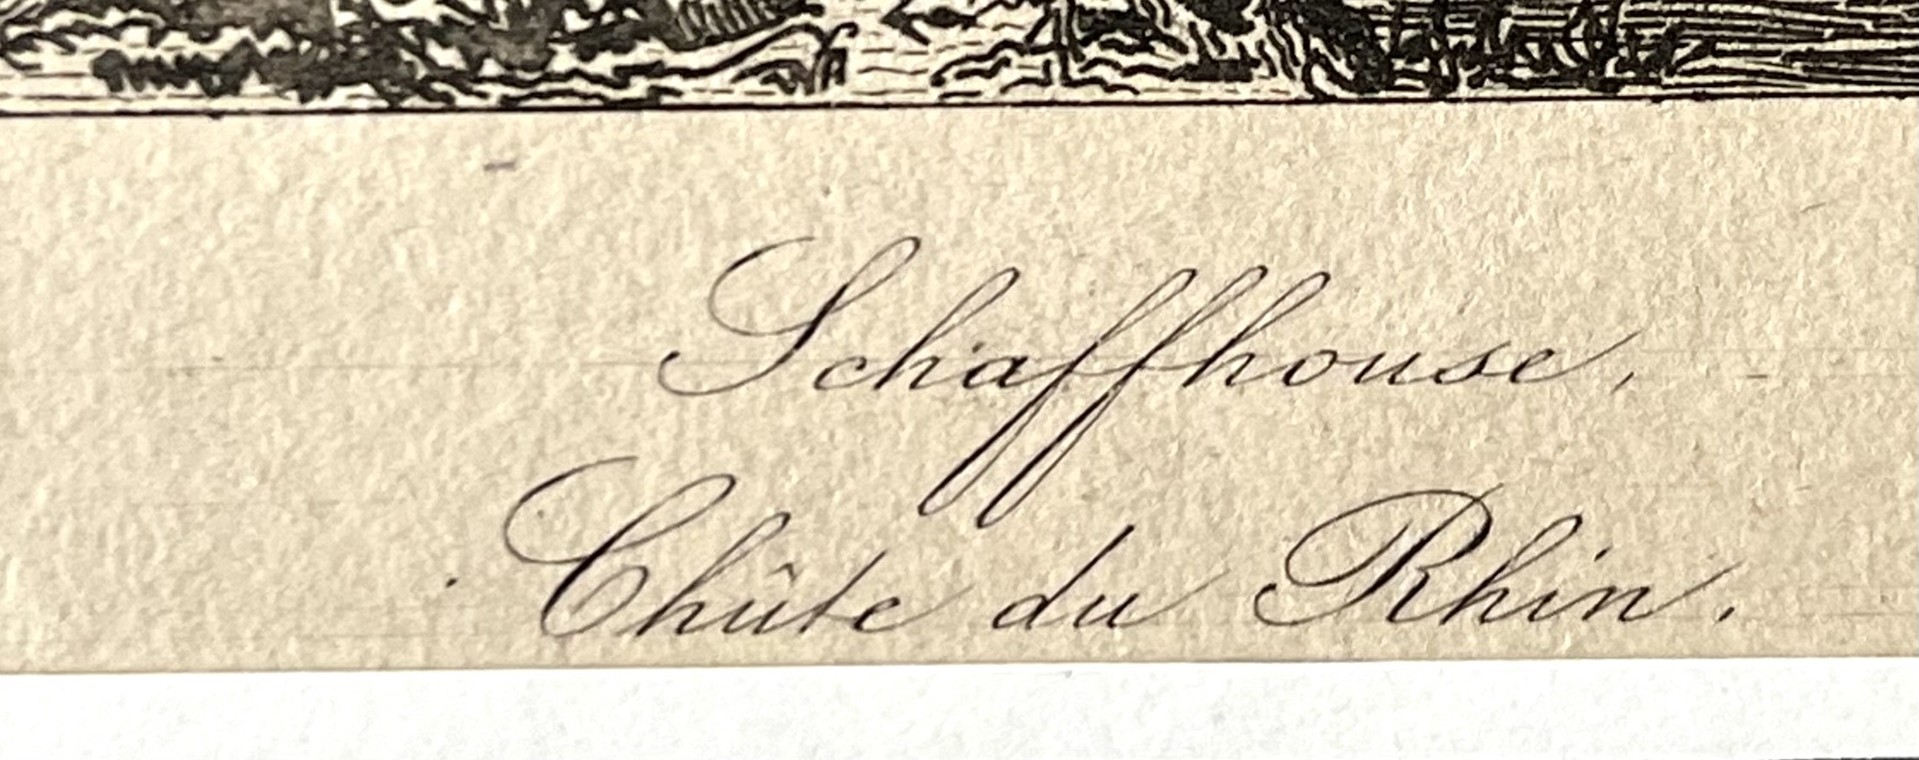 Schaffhouse,
Chûte du Rhin.